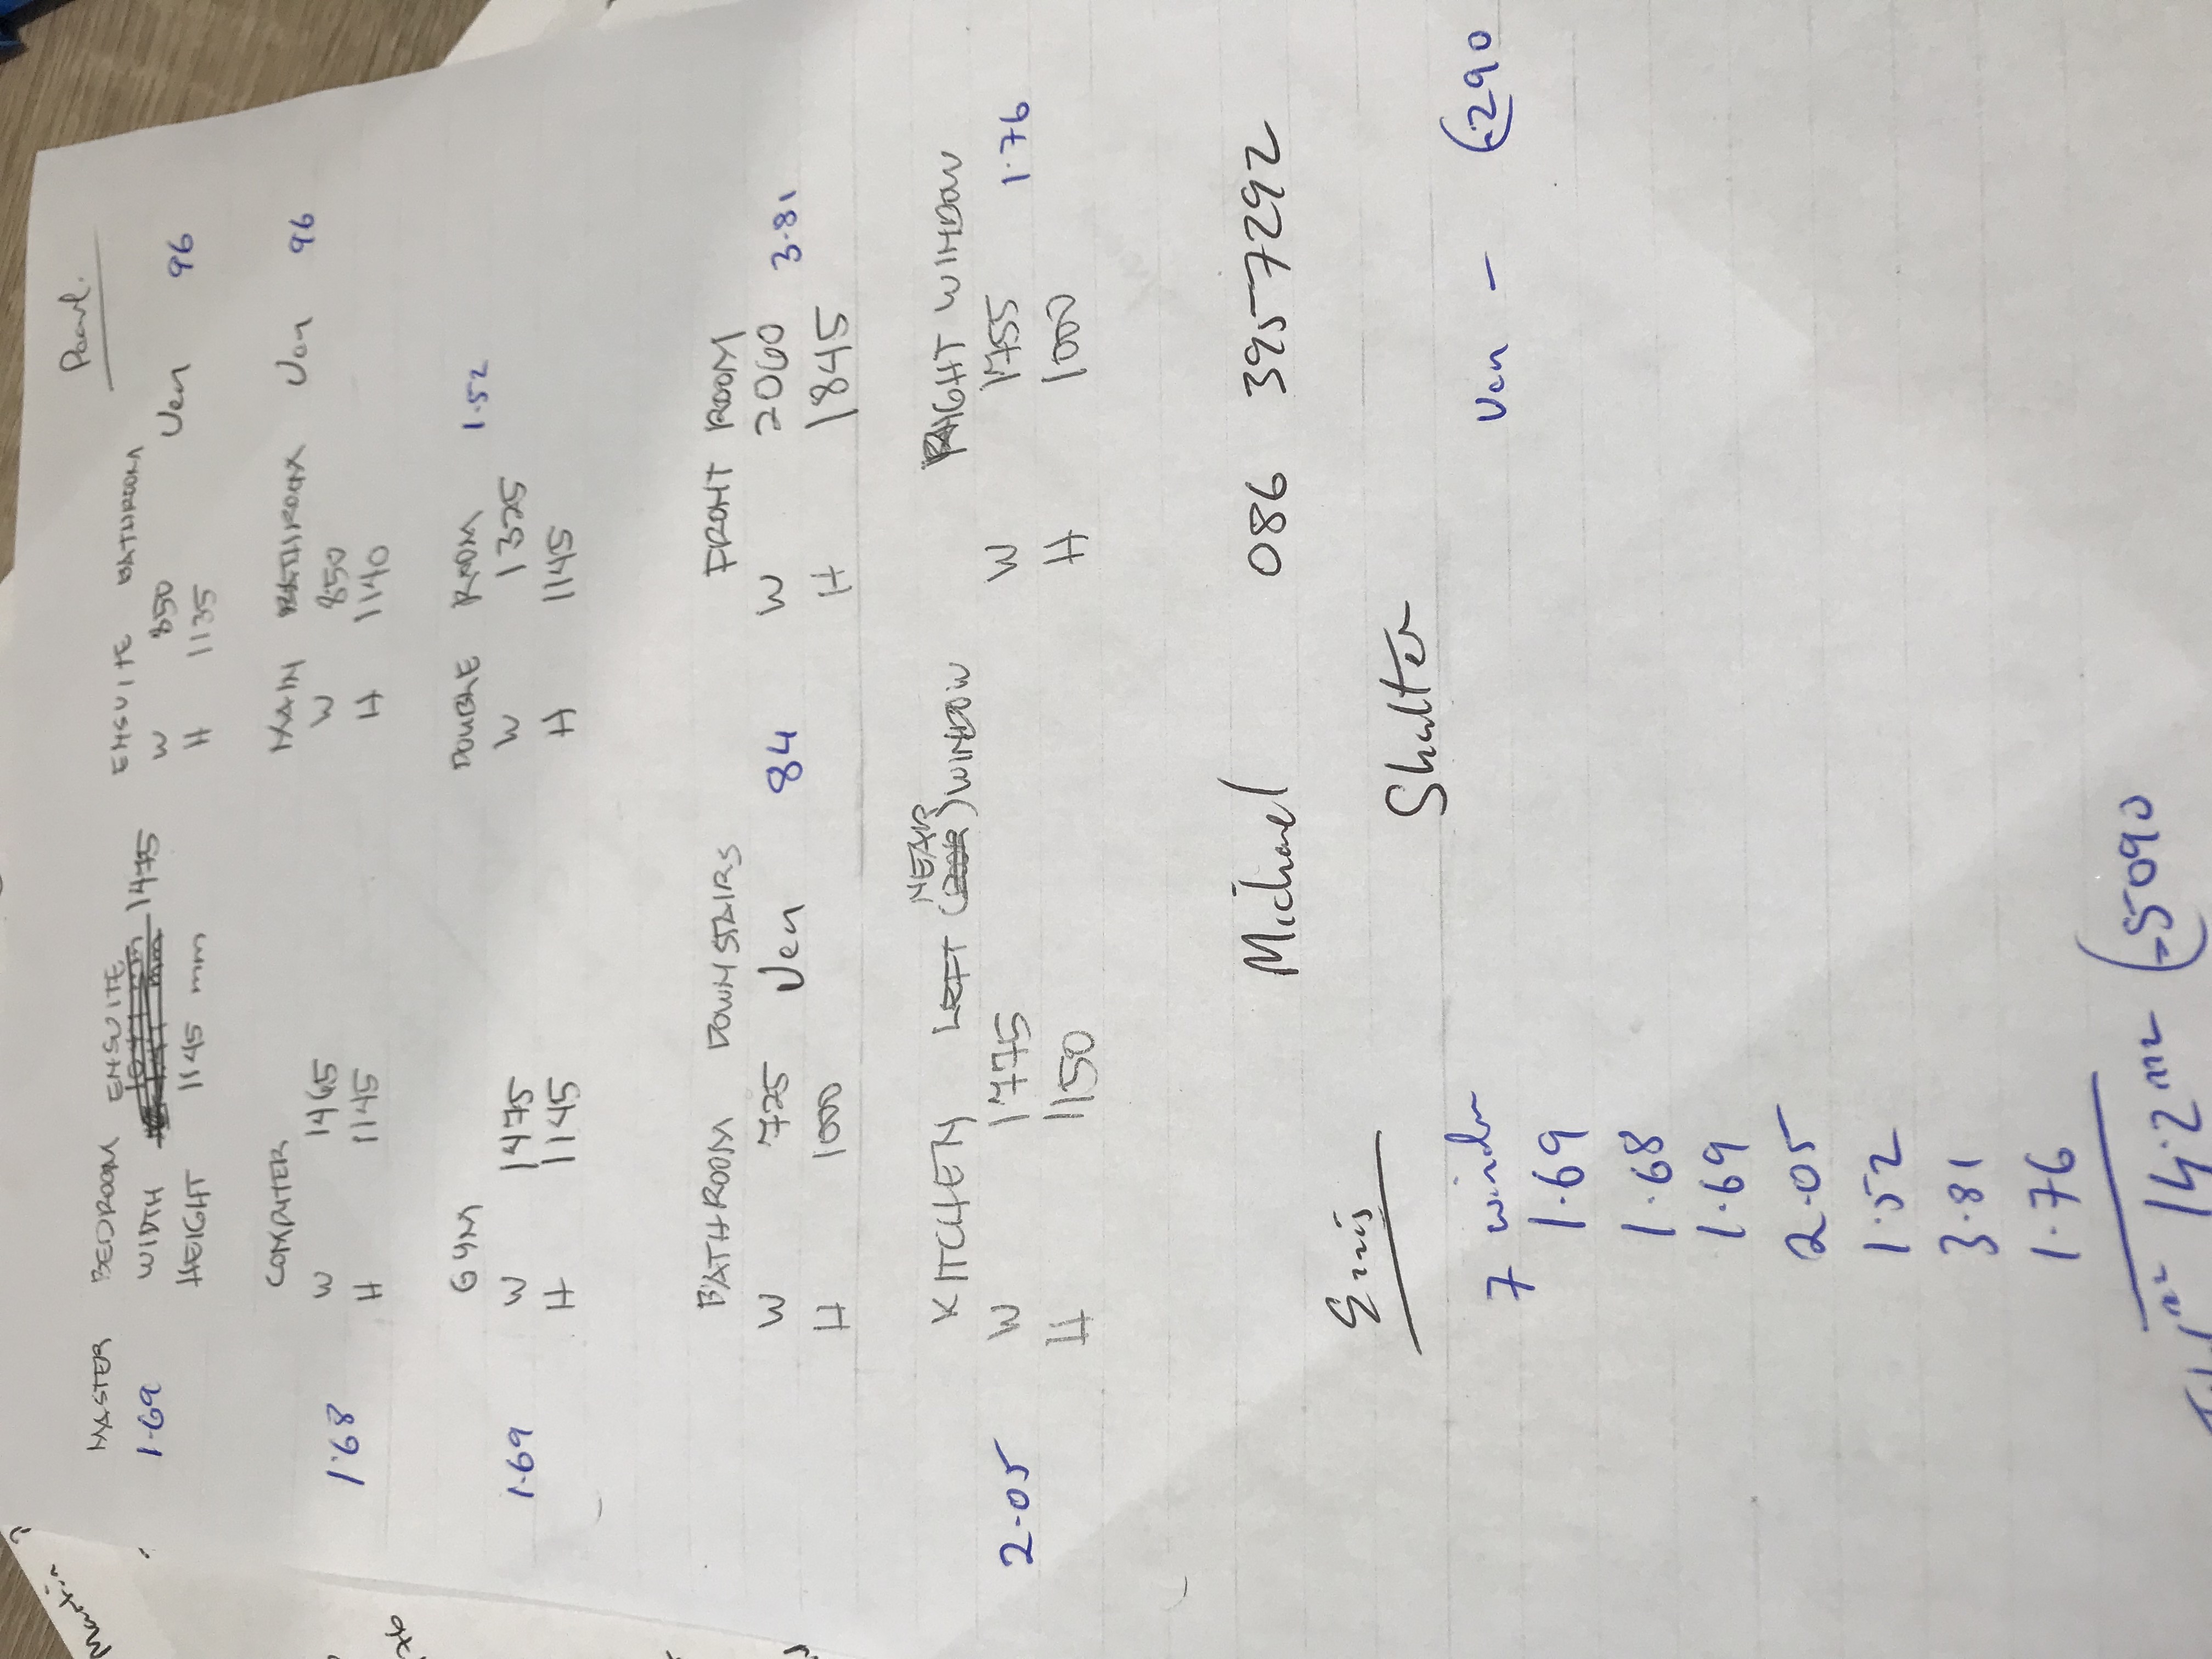 Pearl.
MASTER BEDROOM ENSUITE
1.69 WIDTH 1475
HEIGHT 1145 mm
ENSUITE BATHROOM
W 850 Ven 96
H 1135
COMPUTER
W 1465
1.68 H 1145
MAIN BATHROOM Ven 96
W 850
H 1140
GYM
1.69 W 1475
H 1145
DOUBLE ROOM 1.52
W 1325
H 1145
BATHROOM DOWNSTAIRS
W 725 Ven 84
H 1000
FRONT ROOM
W 2060 3.81
H 1845
KITCHEN LEFT (NEAR) WINDOW
2.05 W 1775
H 1150
RIGHT WINDOW
W 1755 1.76
H 1000
Michael 086 395 7292
Ennis
Shutter
7 window Ven - €290
1.69
1.68
1.69
2.05
1.52
3.81
1.76
Total m² 14.2 m² €5090
Martin